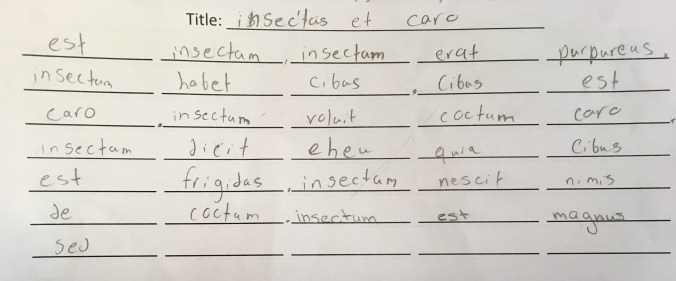 Title: insectus et caro
est insectam . insectam erat purpureus .
insectum habet cibus . Cibus est
caro . insectam voluit coctum caro .
insectam dicit eheu quia Cibus
est frigidus . insectam nescit nimis
de coctum . insectum est magnus
sed